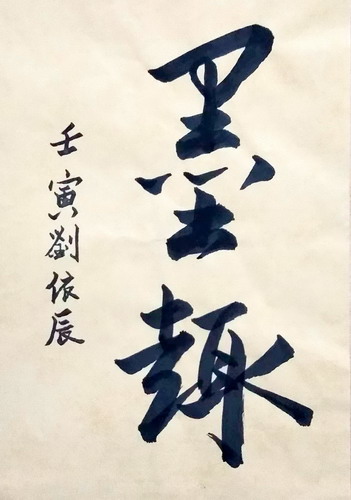 墨趣
壬寅劉依辰